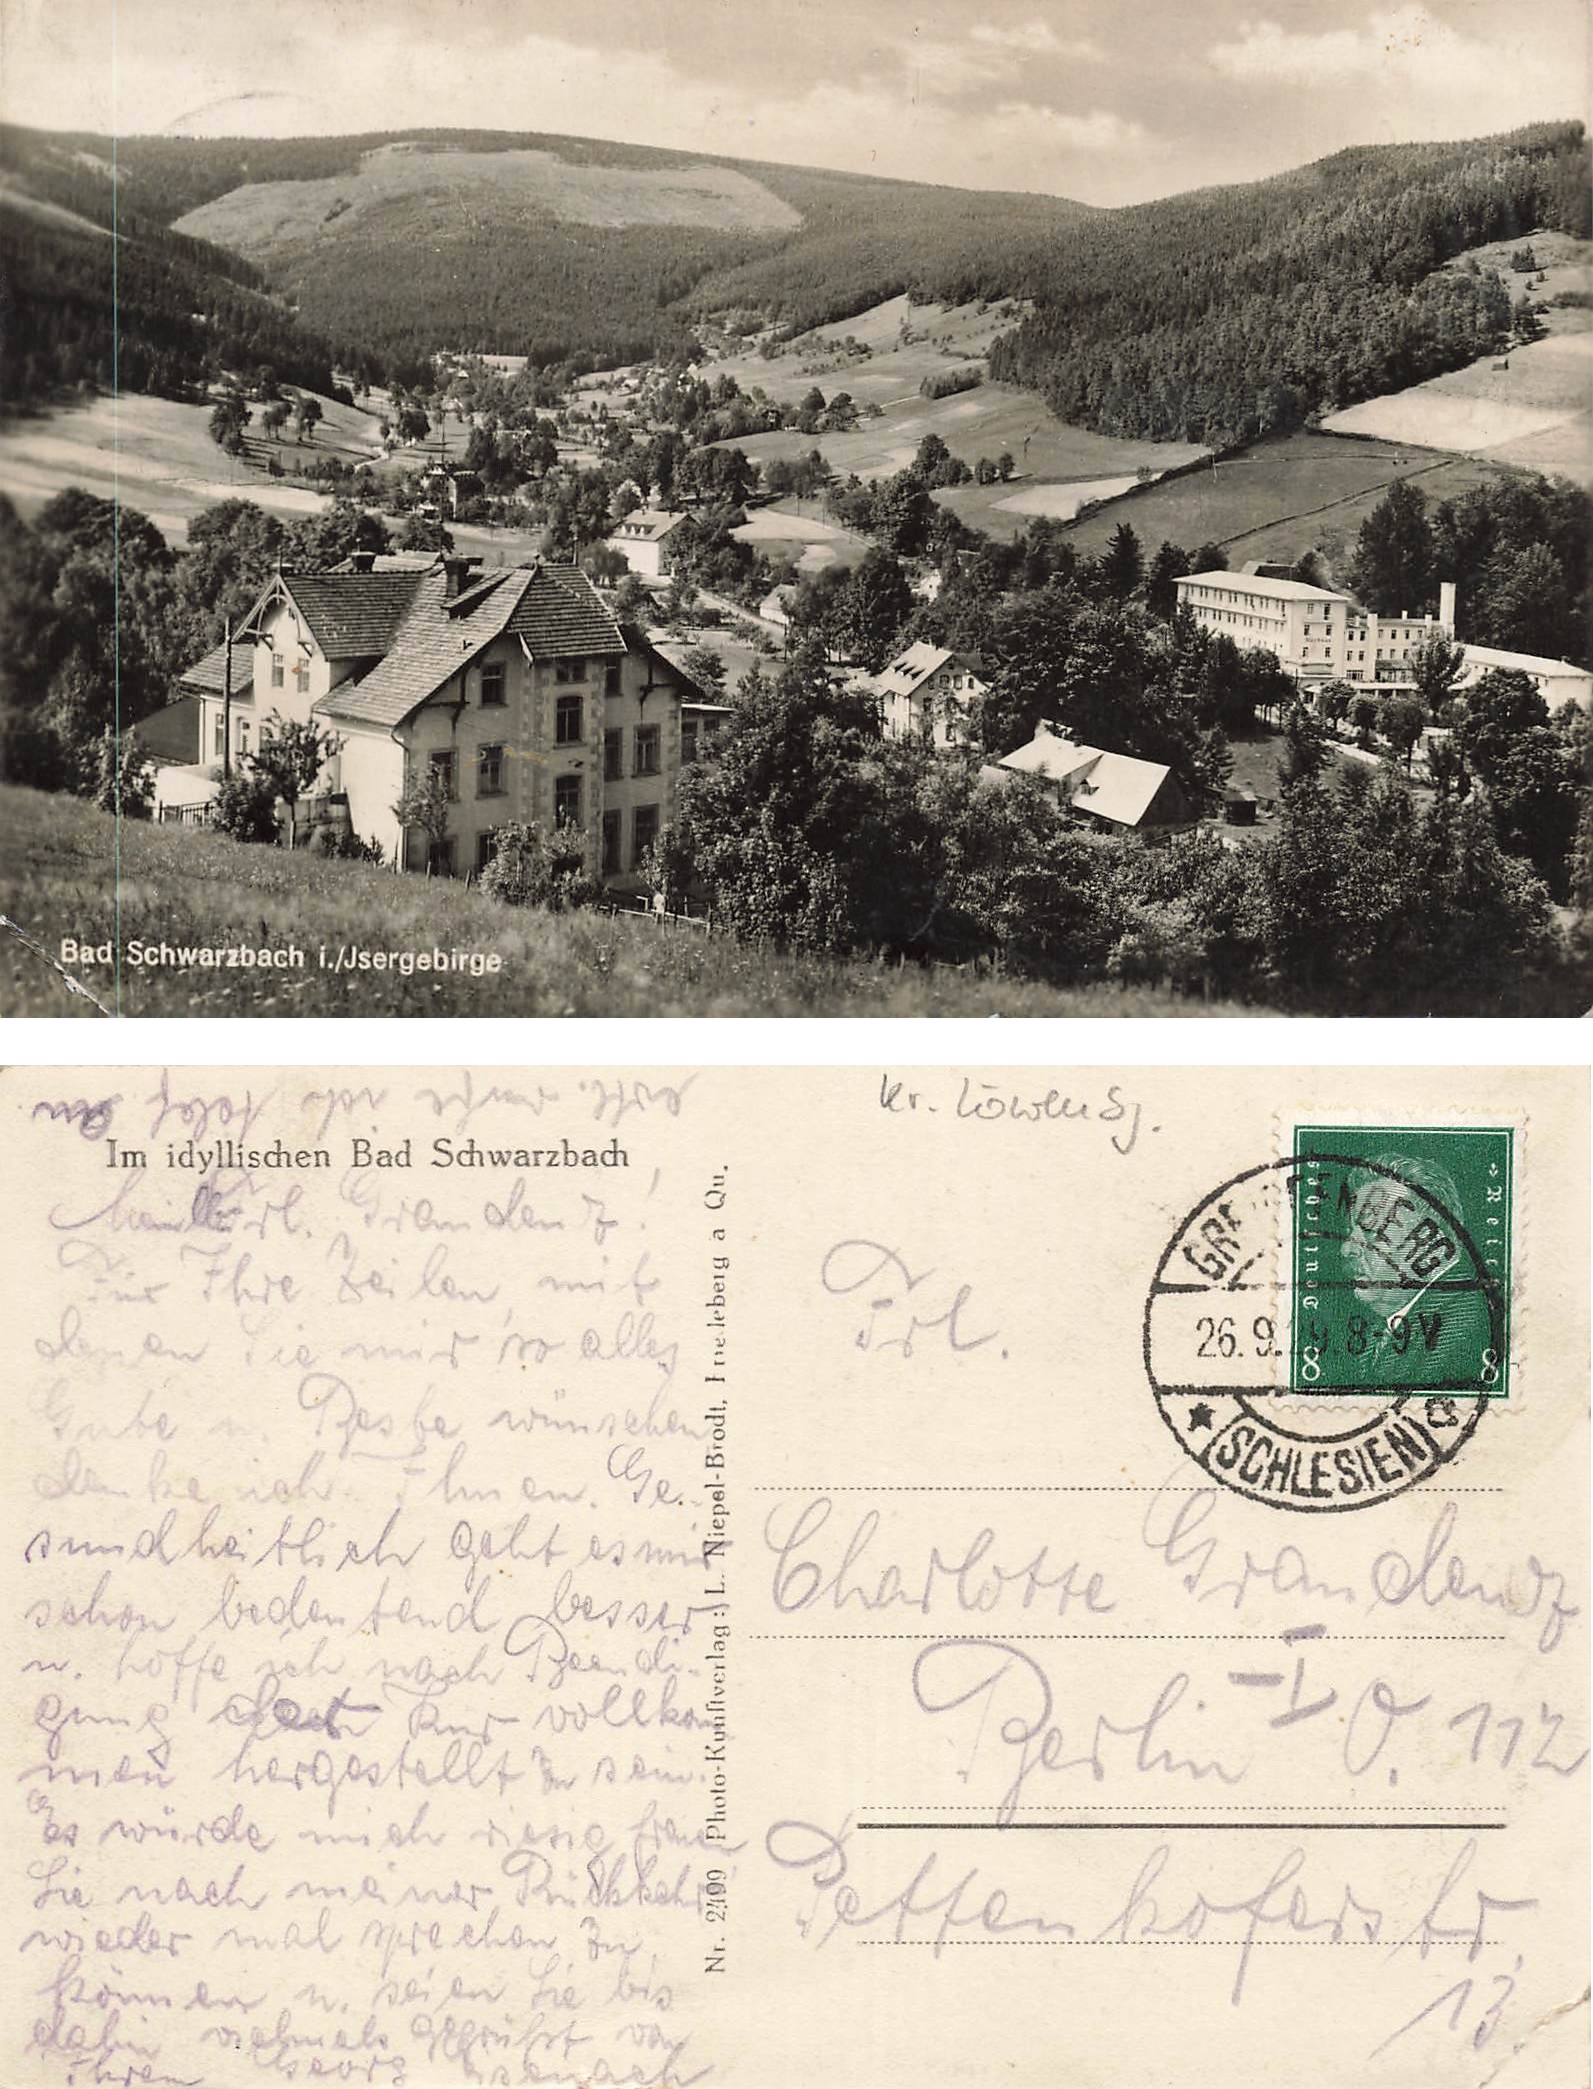 Bad Schwarzbach i./Jsergebirge
Kurhaus
Im idyllischen Bad Schwarzbach
Mein Frl. Graudenz!
Für Ihre Zeilen, mit
denen Sie mir so alles
Gute u. Beste wünschen
danke ich Ihnen. Ge-
sundheitlich geht es mir
schon bedeutend besser
u. hoffe ich nach Beendi-
gung der Kur vollkom
men hergestellt zu sein.
Es würde mich riesig freuen
Sie nach meiner Rückkehr
wieder mal sprechen zu
können u. seien Sie bis
dahin vielmals gegrüßt von
Ihrem Georg
Nr. 2499 Photo-Kunstverlag: L. Niepel-Brodt, Friedeberg a Qu.
Kr. Löwenbg.
Deutsches Reich
8 8
GREIFFENBERG
26.9.29.8-9V
(SCHLESIEN) a
Frl.
Charlotte Graudenz
Berlin O. 112
Pettenkoferstr.
13.